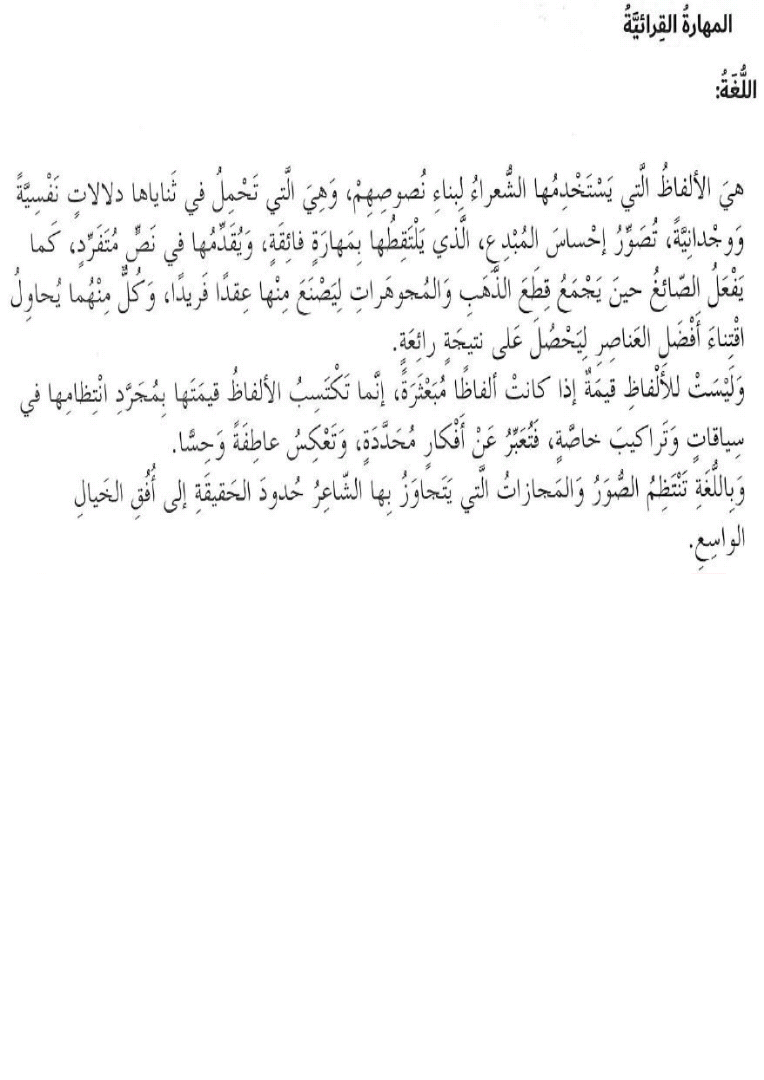 المهارةُ القِرائيَّةُ
اللُّغَةُ:
هيَ الألفاظُ الَّتي يَسْتَخْدِمُها الشُّعراءُ لِبناءِ نُصوصِهِمْ، وَهِيَ الَّتي تَحْمِلُ في ثَناياها دلالاتٍ نَفْسِيَّةً
وَوِجْدانِيَّةً، تُصَوِّرُ إحْساسَ المُبْدِعِ، الَّذي يَلْتَقِطُها بِمَهارَةٍ فائِقَةٍ، وَيُقَدِّمُها في نَصٍّ مُتَفَرِّدٍ، كَما
يَفْعَلُ الصّائِغُ حينَ يَجْمَعُ قِطَعَ الذَّهَبِ وَالمُجوهَراتِ لِيَصْنَعَ مِنْها عِقدًا فَريدًا، وَكُلٌّ مِنْهُما يُحاوِلُ
اقْتِناءَ أَفْضَلِ العَناصِرِ لِيَحْصُلَ عَلى نتيجَةٍ رائِعَةٍ.
وَلَيْسَتْ للأَلْفاظِ قيمَةٌ إذا كانتْ ألفاظًا مُبَعْثَرَةً، إنَّما تَكْتَسِبُ الألفاظُ قيمَتَها بِمُجَرَّدِ انْتِظامِها في
سِياقاتٍ وَتَراكيبَ خاصَّةٍ، فَتُعَبِّرُ عَنْ أَفْكارٍ مُحَدَّدَةٍ، وَتَعْكِسُ عاطِفَةً وَحِسًّا.
وَبِاللُّغَةِ تَنْتَظِمُ الصُّوَرُ وَالمَجازاتُ الَّتي يَتَجاوَزُ بِها الشّاعِرُ حُدودَ الحَقيقَةِ إلى أُفُقِ الخَيالِ
الواسِعِ.